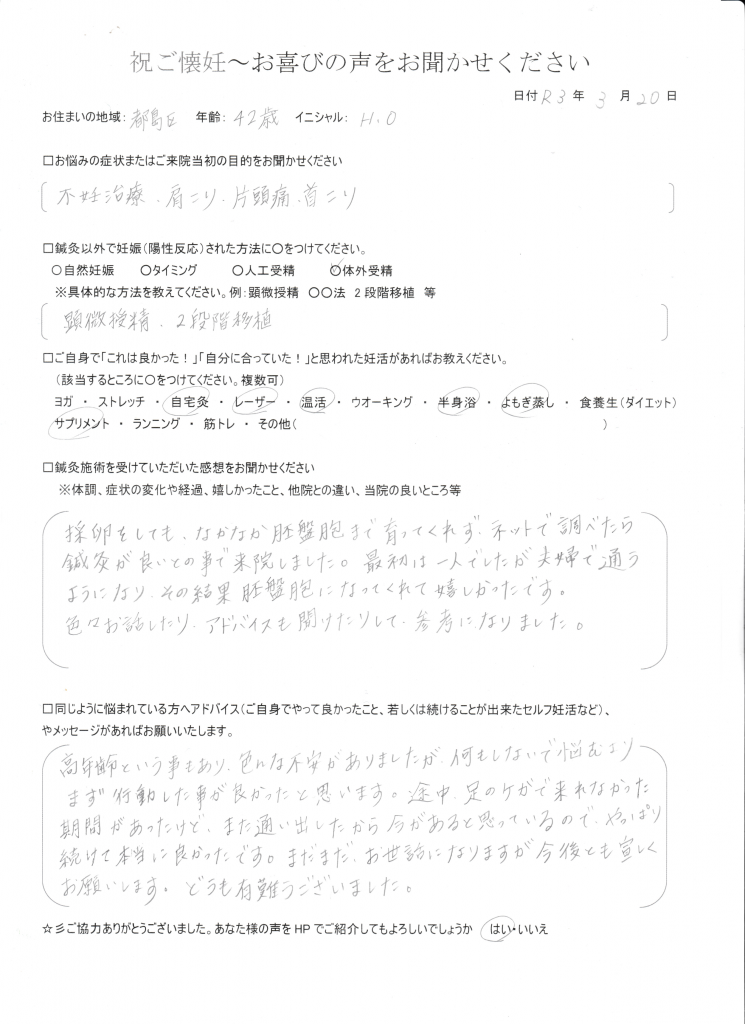 祝ご懐妊～お喜びの声をお聞かせください
日付 R3 年 3 月 20 日
お住まいの地域: 都島区 年齢: 42歳 イニシャル: H.O
□お悩みの症状またはご来院当初の目的をお聞かせください
不妊治療、肩こり、片頭痛、首こり
□鍼灸以外で妊娠（陽性反応）された方法に○をつけてください。
○自然妊娠 ○タイミング ○人工受精 ○体外受精
※具体的な方法を教えてください。例：顕微授精 ○○法 2段階移植 等
顕微授精、2段階移植
□ご自身で「これは良かった！」「自分に合っていた！」と思われた妊活があればお教えください。
（該当するところに○をつけてください。複数可）
ヨガ ・ ストレッチ ・ 自宅灸 ・ レーザー ・ 温活 ・ ウオーキング ・ 半身浴 ・ よもぎ蒸し ・ 食養生（ダイエット）
サプリメント ・ ランニング ・ 筋トレ ・ その他（ ）
□鍼灸施術を受けていただいた感想をお聞かせください
※体調、症状の変化や経過、嬉しかったこと、他院との違い、当院の良いところ等
採卵をしても、なかなか胚盤胞まで育ってくれず、ネットで調べたら
鍼灸が良いとの事で来院しました。最初は一人でしたが夫婦で通う
ようになり、その結果胚盤胞になってくれて嬉しかったです。
色々お話したり、アドバイスも聞けたりして、参考になりました。
□同じように悩まれている方へアドバイス（ご自身でやって良かったこと、若しくは続けることが出来たセルフ妊活など）、
やメッセージがあればお願いいたします。
高年齢という事もあり、色んな不安がありましたが、何もしないで悩むより
まず行動した事が良かったと思います。途中、足のケガで来れなかった
期間があったけど、また通い出したから今があると思っているので、やっぱり
続けて本当に良かったです。まだまだ、お世話になりますが今後とも宜しく
お願いします。どうも有難うございました。
☆彡ご協力ありがとうございました。あなた様の声をHPでご紹介してもよろしいでしょうか はい・いいえ